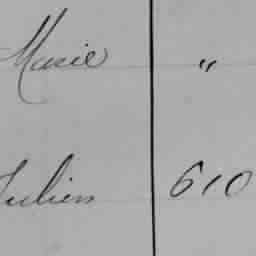 Marie "
Julien 610